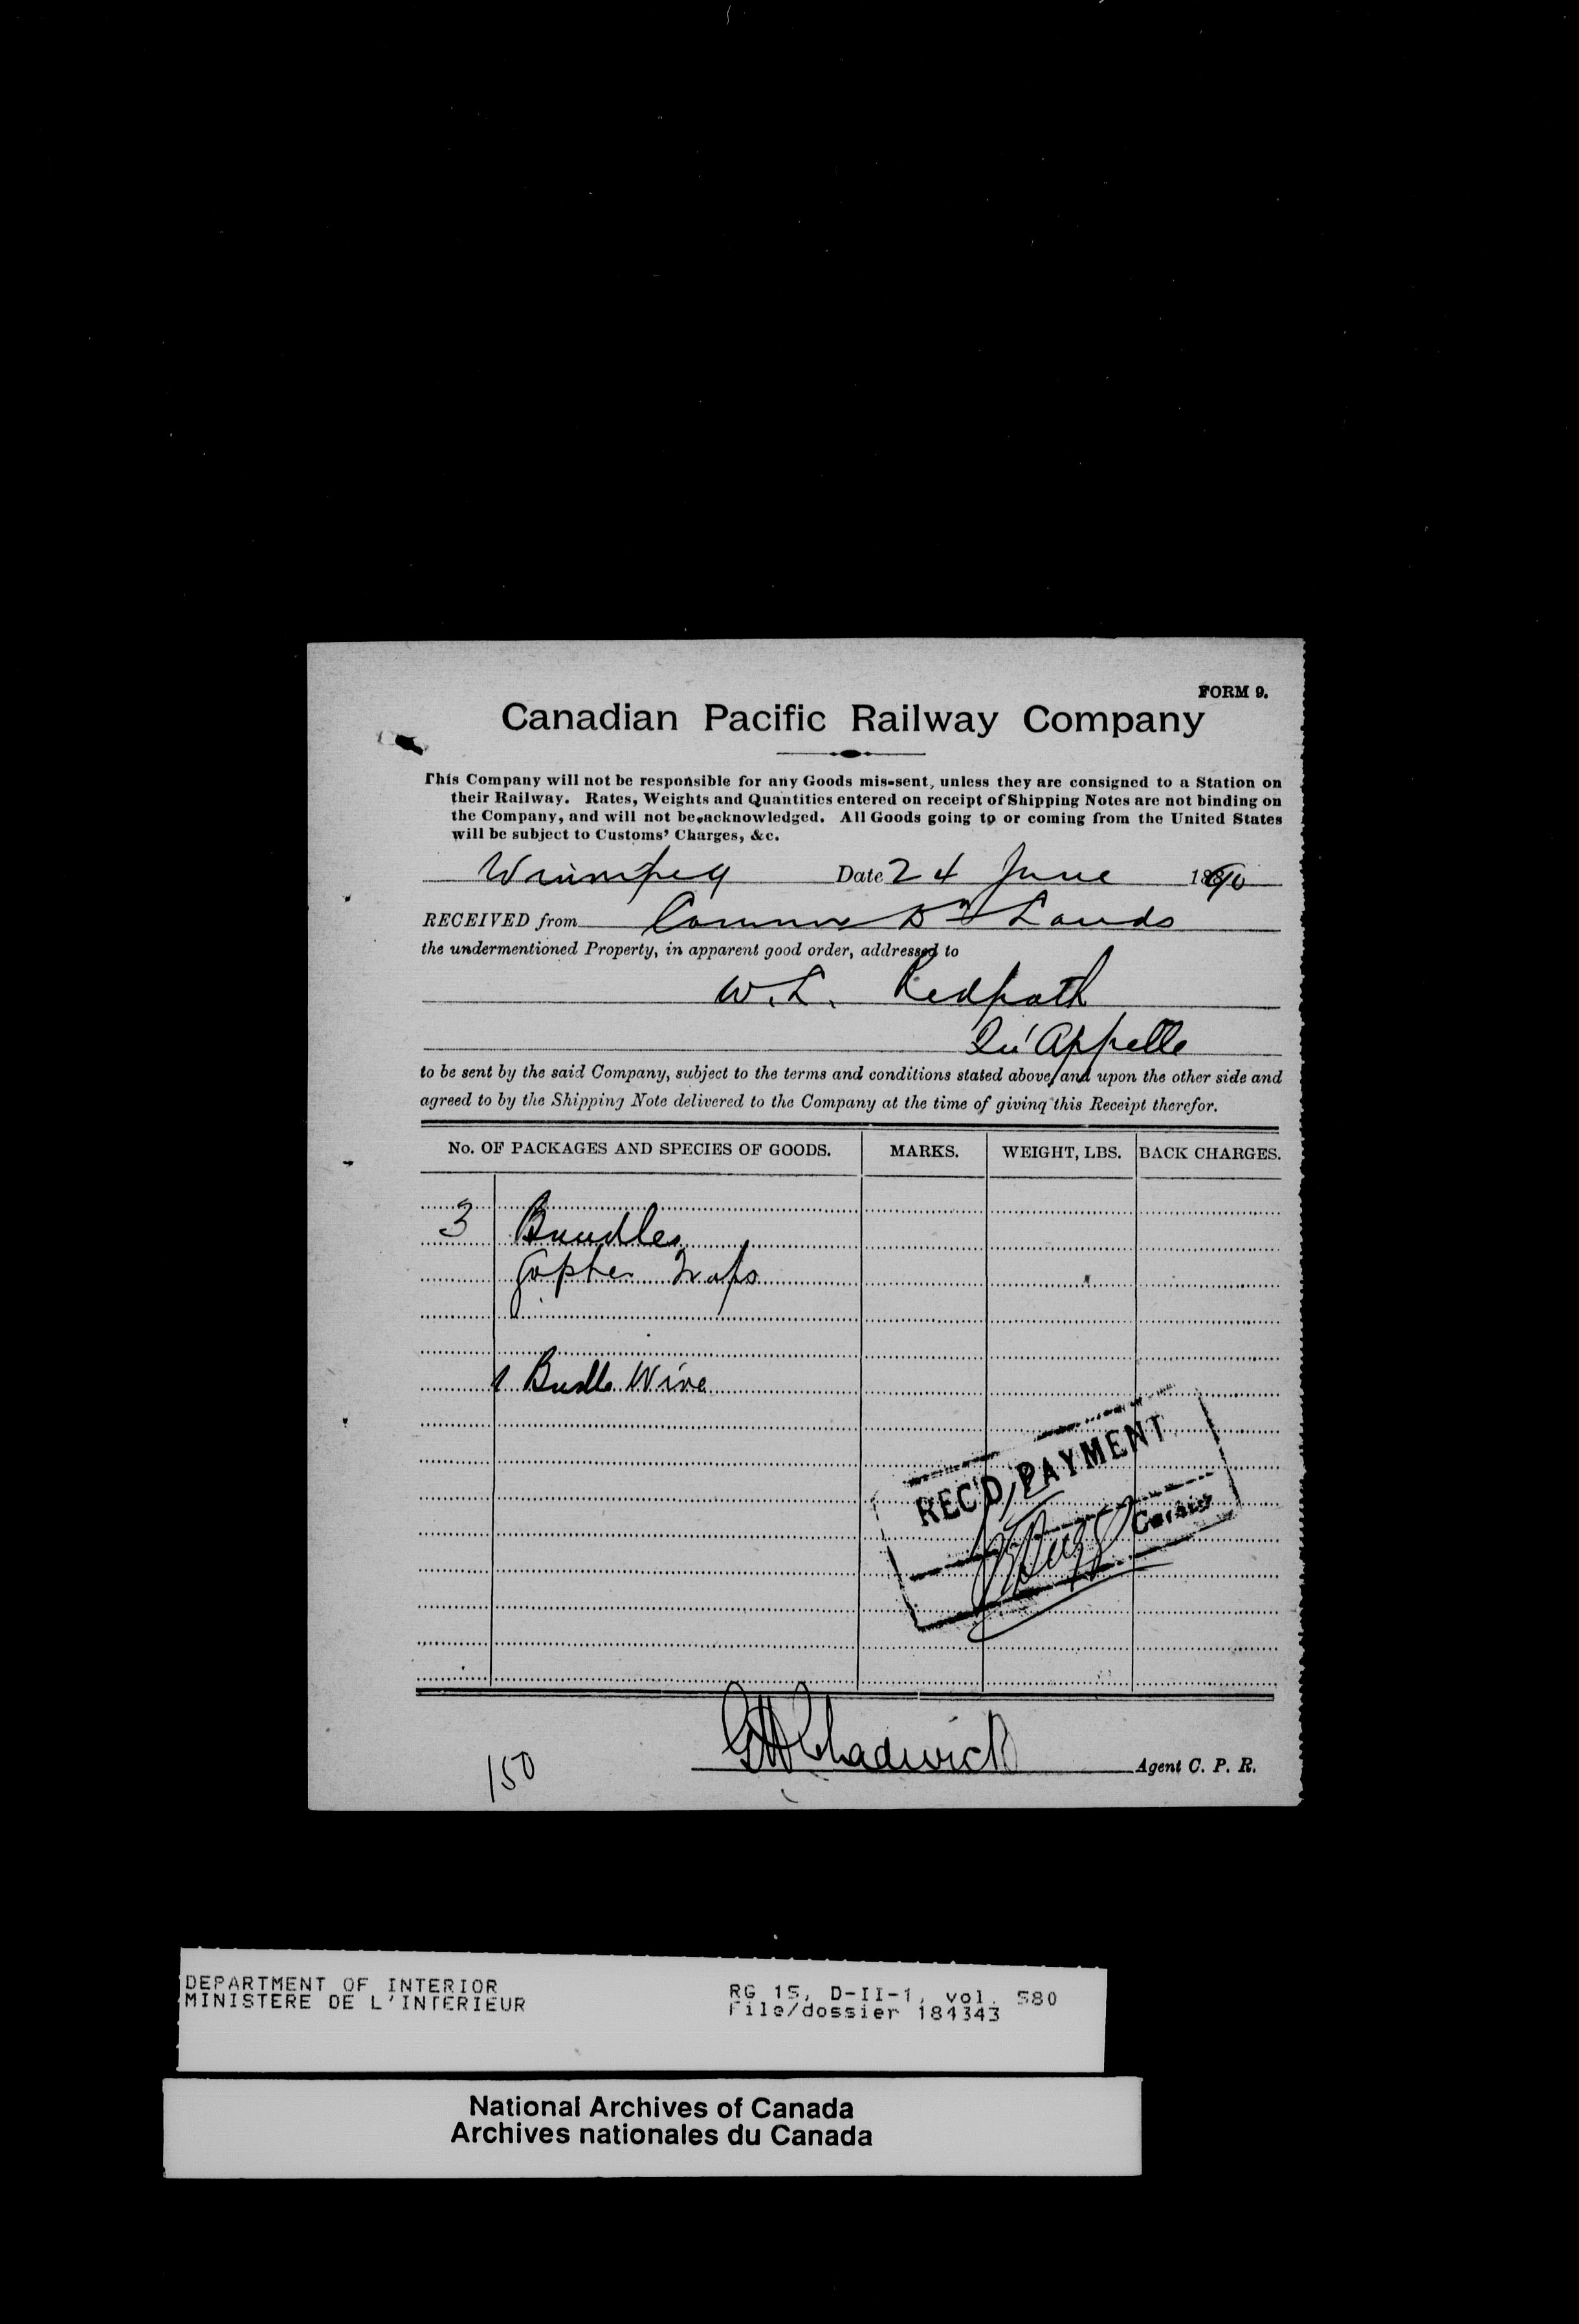 FORM 9.
Canadian Pacific Railway Company
This Company will not be responsible for any Goods mis-sent, unless they are consigned to a Station on
their Railway. Rates, Weights and Quantities entered on receipt of Shipping Notes are not binding on
the Company, and will not be acknowledged. All Goods going to or coming from the United States
will be subject to Customs' Charges, &c.
Winnipeg Date 24 June 1890
RECEIVED from Commr Dn Lands
the undermentioned Property, in apparent good order, addressed to
W. L. Redpath
Qu'Appelle
to be sent by the said Company, subject to the terms and conditions stated above, and upon the other side and
agreed to by the Shipping Note delivered to the Company at the time of giving this Receipt therefor.
No. OF PACKAGES AND SPECIES OF GOODS. MARKS. WEIGHT, LBS. BACK CHARGES.
3 Bundles
Gopher Traps
1 Bundle Wire
REC'D PAYMENT
Cashier
GH Chadwick Agent C. P. R.
150
DEPARTMENT OF INTERIOR
MINISTERE DE L'INTERIEUR
RG 15, D-II-1, vol. 580
File/dossier 184343
National Archives of Canada
Archives nationales du Canada